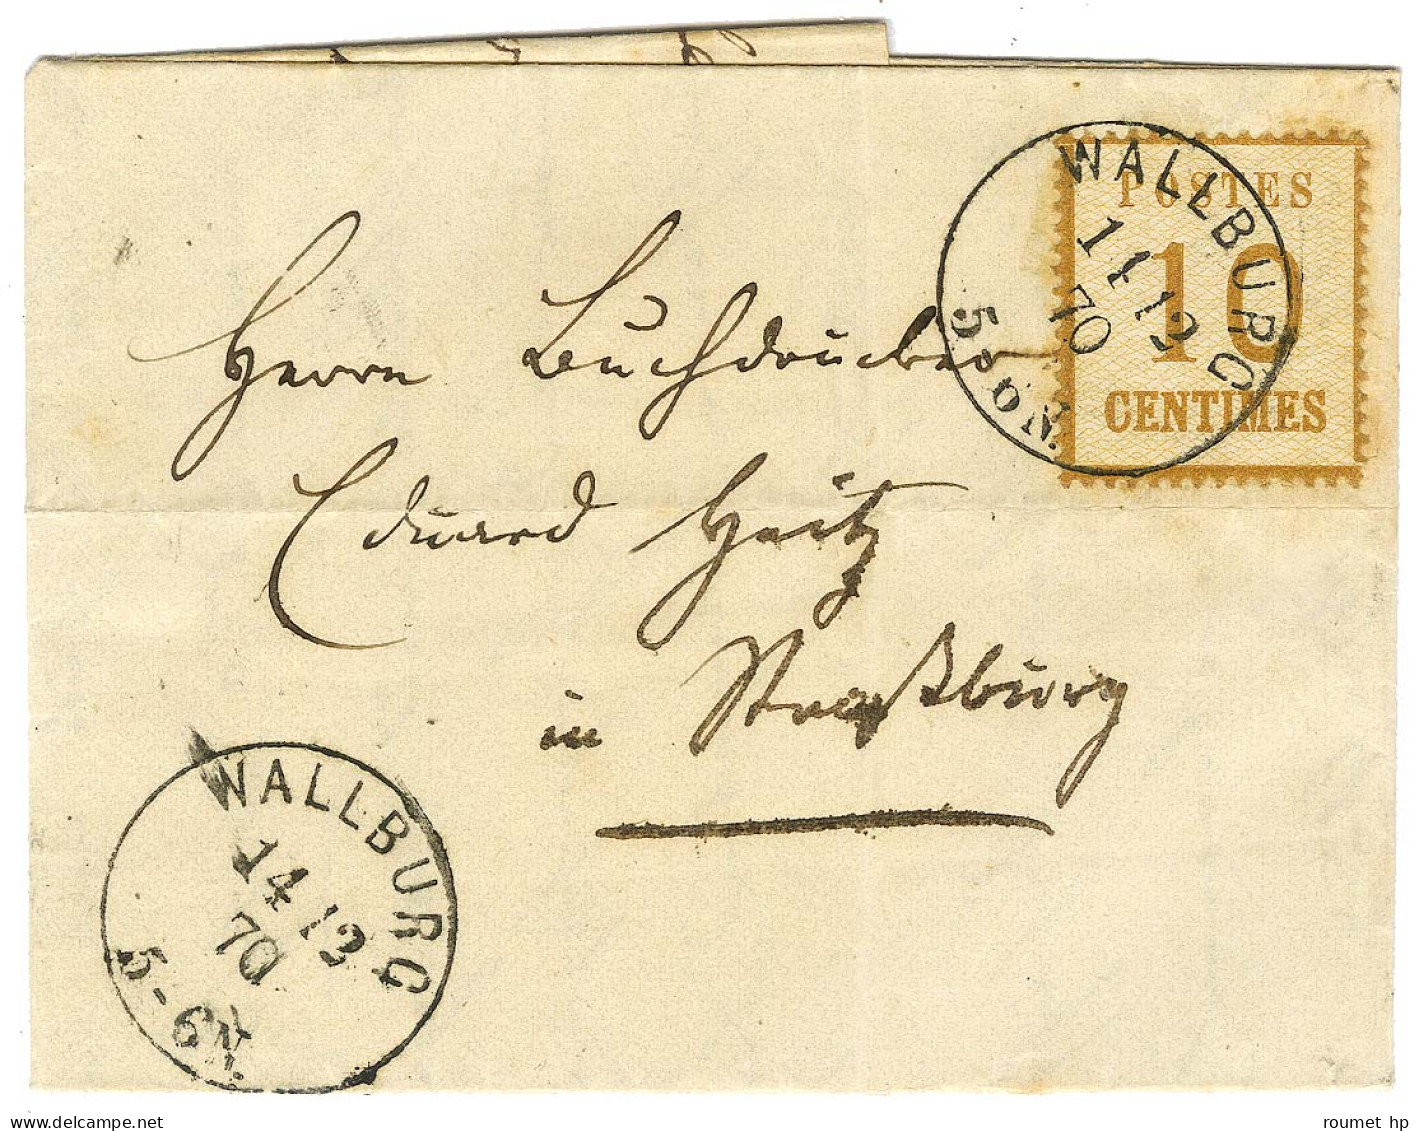 WALLBURG
14 12
70
5-6N.
POSTES
10
CENTIMES
Herrn Buchdrucker
Eduard Heitz
in Straßburg
WALLBURG
14 12
70
5-6N.
roumet hp